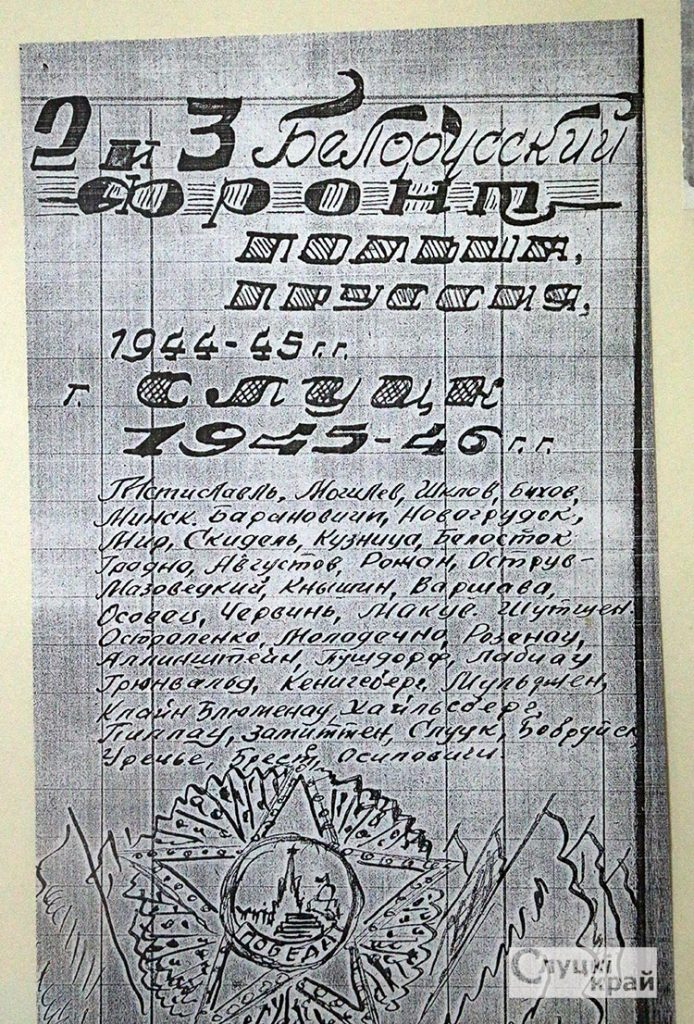 2 и 3 Белорусский
Фронт
Польша,
Пруссия,
1944-45 г.г.
г. Слуцк
1945-46 г.г.
Мстиславль, Могилев, Шклов, Быхов,
Минск. Барановичи, Новогрудок,
Мир, Скидель, Кузница, Белосток
Гродно, Августов, Рожан, Острув-
Мазовецкий, Кнышин, Варшава,
Осовец, Червинь, Макув. Шутщен.
Остроленко, Молодечно, Розенау,
Аллинштейн, Пушдорф, Лабиау
Грюнвальд, Кенигсберг, Мульджен,
Клайн Блюменау, Хайльсберг,
Пиллау, Замиттен, Слуцк, Бобруйск,
Уречье, Брест, Осиповичи
ПОБЕДА
Слуцкі
край